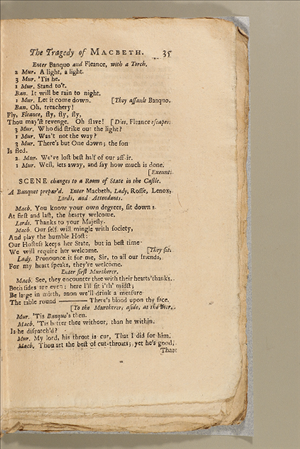 The Tragedy of MACBETH. 35
Enter Banquo and Fleance, with a Torch.
2 Mur. A light, a light.
3 Mur. 'Tis he.
1 Mur. Stand to't.
Ban. It will be rain to night.
1 Mur. Let it come down. [They assault Banquo.
Ban. Oh, treachery!
Fly, Fleance, fly, fly, fly,
Thou may'st revenge. Oh slave! [Dies. Fleance escapes.
3 Mur. Who did strike out the light?
1 Mur. Was't not the way?
3 Mur. There's but One down; the son
Is fled.
2 Mur. We've lost best half of our affair.
1 Mur. Well, lets away, and say how much is done.
[Exeunt.
SCENE changes to a Room of State in the Castle.
A Banquet prepar'd. Enter Macbeth, Lady, Rosse, Lenox,
Lords, and Attendants.
Mach. You know your own degrees, sit down:
At first and last, the hearty welcome.
Lords. Thanks to your Majesty.
Mach. Our self will mingle with society,
And play the humble Host:
Our Hostess keeps her State, but in best time
We will require her welcome. [They sit.
Lady. Pronounce it for me, Sir, to all our friends,
For my heart speaks, they're welcome.
Enter first Murtherer.
Mach. See, they encounter thee with their hearts' thanks.
Both sides are even; here I'll sit i'th' midst;
Be large in mirth, anon we'll drink a measure
The table round —— There's blood upon thy face.
[To the Murtherer, aside, at the door.
Mur. 'Tis Banquo's then.
Mach. 'Tis better thee without, than he within.
Is he dispatch'd?
Mur. My lord, his throat is cut, That I did for him.
Mach. Thou art the best of cut-throats; yet he's good,
That